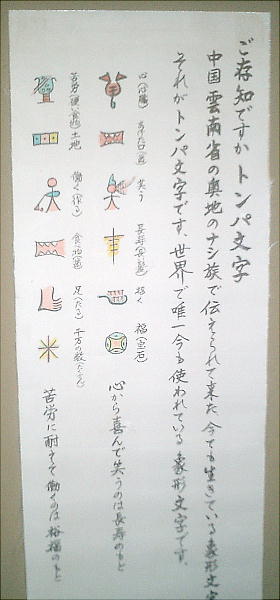 ご存知ですか トンパ文字
中国 雲南省の奥地のナシ族で伝えられて来た 今でも生きている象形文字
それがトンパ文字です。世界で唯一今も使われている象形文字です。
笑う
長寿
招く
福(宝石)
心から喜んで笑うのは長寿のもと
苦労
土地
働く(作る)
食べ物
足(たる)
千万の数(たくさん)
苦労に耐えて働くのは裕福のもと